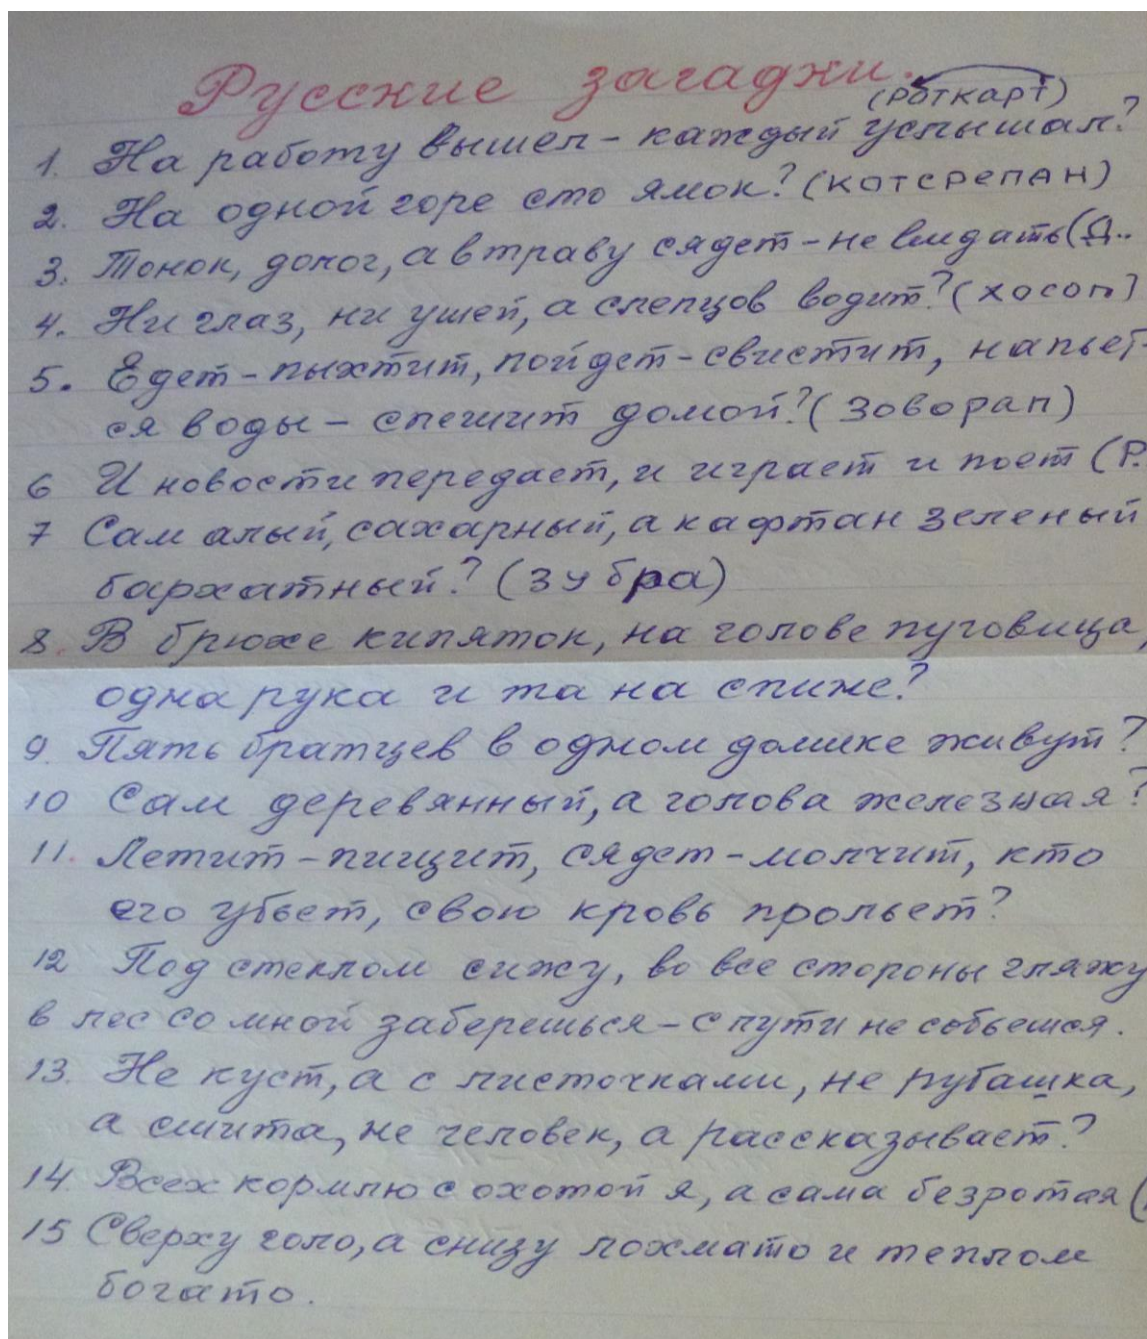 Русские загадки.
(РОТКАРТ)
1. На работу вышел – каждый услышал?
2. На одной горе сто ямок? (КОТСРЕПАН)
3. Тонок, долог, а в траву сядет – не видать (Д..
4. Ни глаз, ни ушей, а слепцов водит? (ХОСОП)
5. Едет – пыхтит, пойдет – свистит, напьет-
ся воды – спешит домой? (ЗОВОРАП)
6 И новости передает, и играет и поет (Р.
7 Сам алый, сахарный, а кафтан зеленый
бархатный? (зубра)
8. В брюхе кипяток, на голове пуговица,
одна рука и та на спине?
9. Пять братцев в одном домике живут?
10 Сам деревянный, а голова железная?
11. Летит – пищит, сядет – молчит, кто
его убьет, свою кровь прольет?
12 Под стеклом сижу, во все стороны гляжу
в лес со мной заберешься – с пути не собьешся.
13. Не куст, а с листочками, не рубашка,
а сшита, не человек, а рассказывает?
14. Всех кормлю с охотой я, а сама безротая (
15 Сверху голо, а снизу лохмато и теплом
богато.